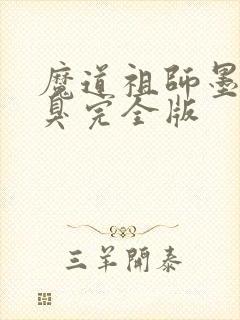 魔道祖師墨
臭完全版
三羊開泰